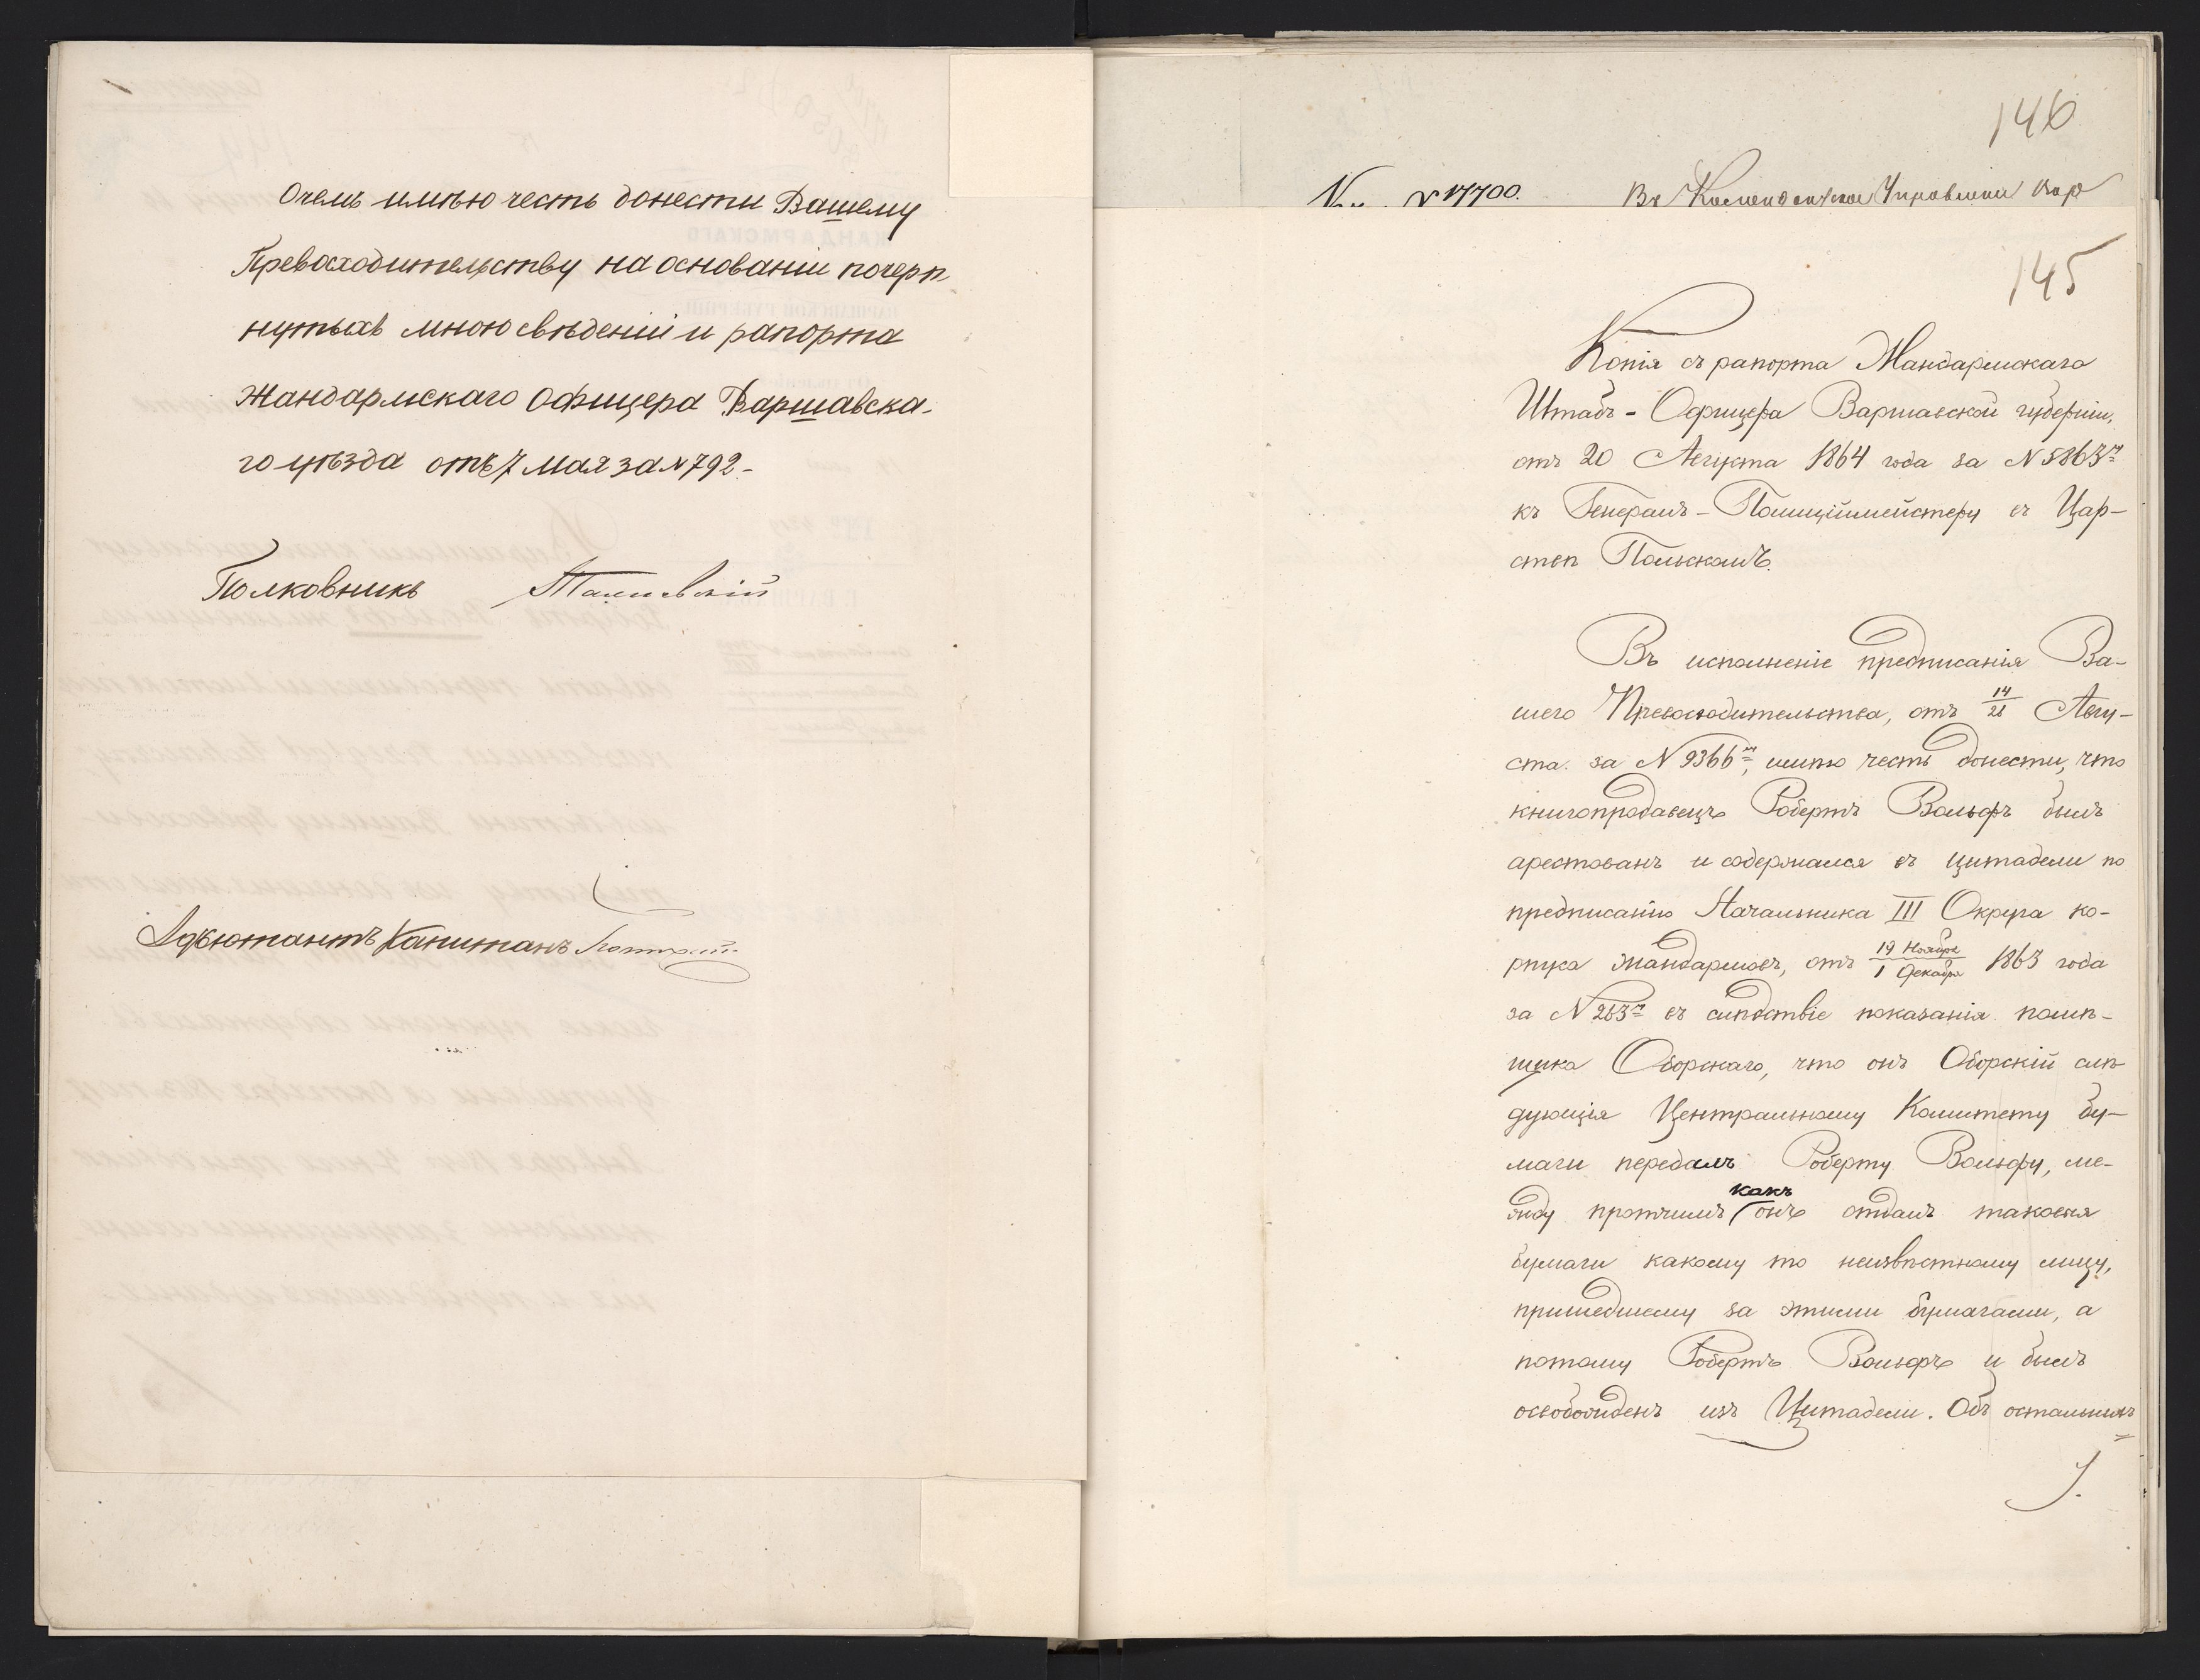 Очемъ имѣю честь донести Вашему
Превосходительству на основаніи почерп
нутыхъ мною свѣденій и рапорта
Жандармскаго Офицера Варшавска-
го уѣзда отъ 7 Мая за N 792.-
Полковникъ
Адъютантъ Капитанъ
146
17700. Въ Комендантское Управленіе Вар
145
Копія съ рапорта Жандармскаго
Штабъ-Офицера Варшавской губерніи,
отъ 20 Августа 1864 года за N 5863мъ
къ Генералъ-Полиціймейстеру въ Цар-
ствѣ Польскомъ.
Въ исполненіе предписанія Ва-
шего Превосходительства, отъ 14/26 Авгу-
ста за N 9366мъ, имѣю честь донести, что
книгопродавецъ Робертъ Вольфъ былъ
арестованъ и содержался въ цитадели по
предписанію Начальника III Округа ко-
рпуса жандармовъ, отъ 19 Ноября/1 Декабря 1863 года
за N 263мъ въ слѣдствіе показанія помѣ-
щика Оборскаго, что онъ Оборскій слѣ-
дующія Центральному Комитету бу-
маги передалъ Роберту Вольфу, ме-
жду протчимъ какъ онъ отдалъ таковыя
бумаги какому то неизвѣстному лицу,
пришедшему за этими бумагами, а
потому Робертъ Вольфъ и былъ
освобожденъ изъ Цитадели. Объ остальныхъ